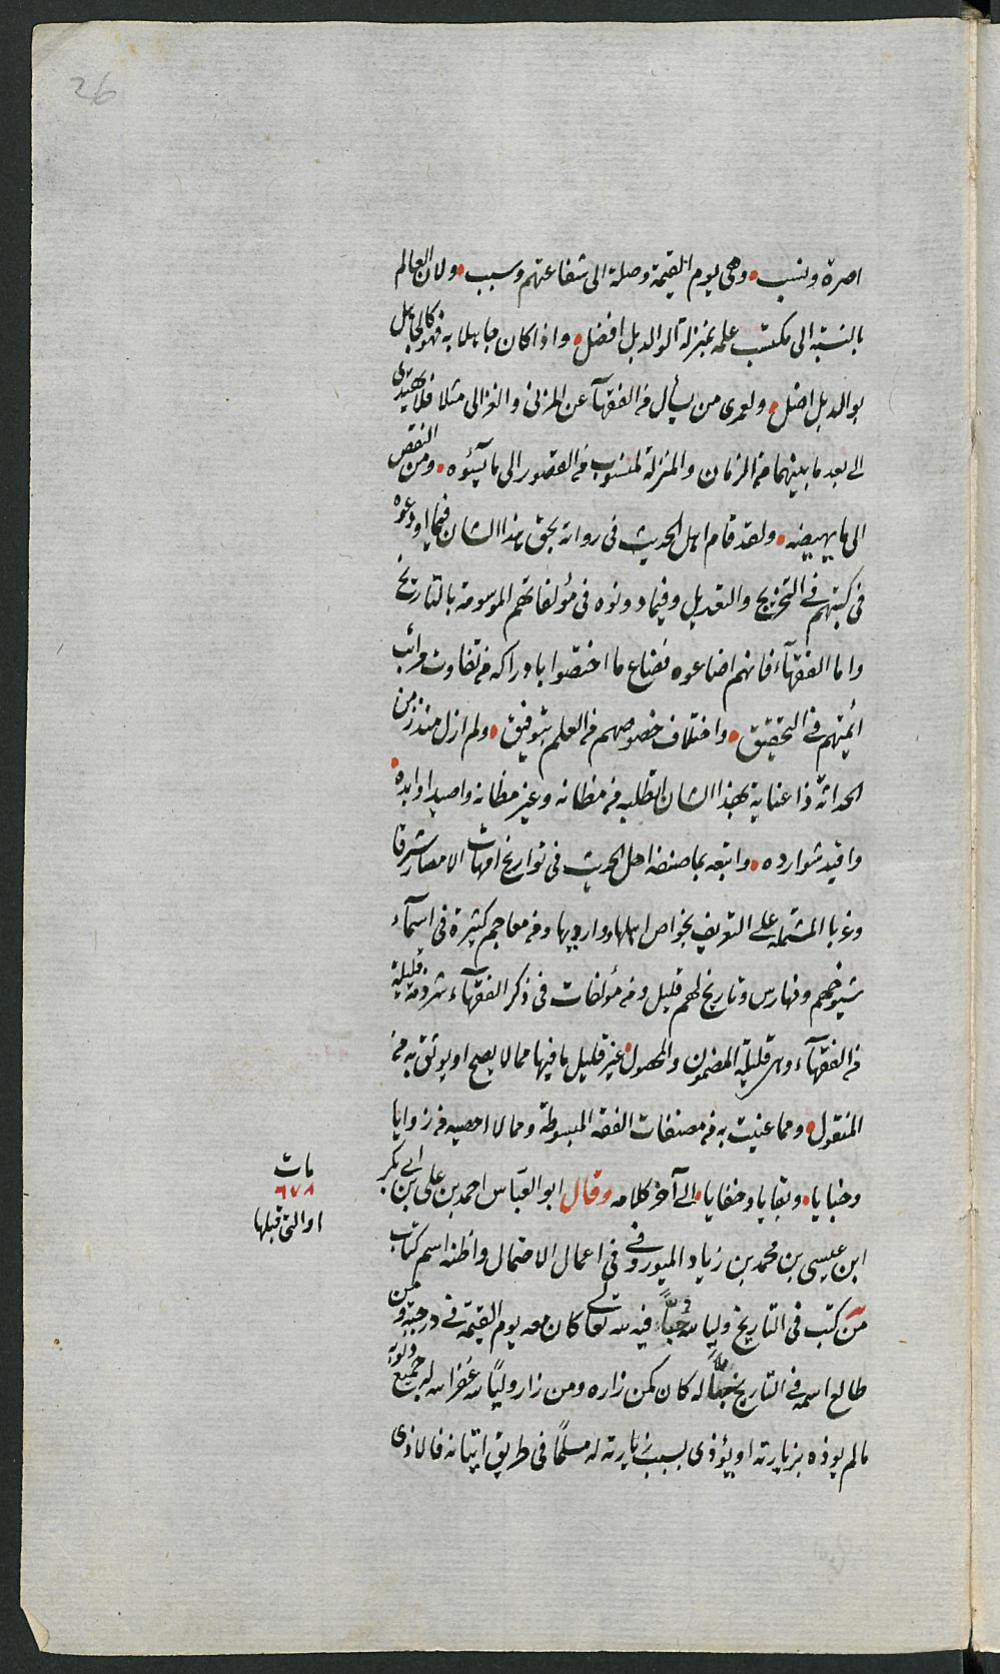 26
اصرة ونسب • وهى يوم القيمة وصلة الى شفاعتهم وسبب • ولان العالم
بالنسبة الى مكتسب علمه بمنزلة الوالد بل افضل • واذا كان جاهلا به فهو كالجاهل
بوالده بل اضل • ولعمرى من يسأل من الفقهآ عن المزنى والغزالى مثلا فلا يهتدى
الى بعد ما بينهما من الزمان والمنزلة لمنسوب من القصور الى ما يسئوه • ومن النقص
الى ما يهيضه • ولقد قام اهل الحديث فى رواته بحق هذا الشان فيما اودعوه
فى كتبهم فى التجريح والتعديل وفيما دونوه فى مؤلفاتهم الموسومة بالتاريخ
واما الفقهآء فانهم اضاعوه فضاع ما اختصوا بادراكه من تفاوت مراتب
أئمتهم فى التحقيق • واختلاف خصوصهم من العلم بتوفيق • ولم ازل منذ زمن
الحداثة ذا عناية بهذا الشان اتطلبه من مظانه وغير مظانه واصيد اوابده •
واقيد شوارده • واتبعه بما صنفه اهل الحديث فى تواريخ امهات الامصار شرقا
وغربا المشتملة على التعريف بخواص اهلها وواردیها ومن معاجم كثيرة فى اسمآء
شيوخهم وفهارس وتاريخ لهم قليل ومن مؤلفات فى ذكر الفقهآء شرذمة قليلة
من الفقهآء وهى قليلة المضمون والمحصول • غير قليل ما فيها مما لا يصح او يوثق به من
المنقول • ومما عنيت به من مصنفات الفقه المبسوطة ومما لا احصيه من زوايا
وخبايا • وبقايا وخفايا • الى آخر كلامه وقال ابو العباس احمد بن على بن ابى بكر
ابن عيسى بن محمد بن زياد الميورقى فى اعمال الاحتمال واظنه اسم كتاب
من كتب فى التاريخ وليا لله حبا فيه لله تعالى كان معه يوم القيمة فى درجته ومن
طالع اسمه فى التاريخ حبا له كان كمن زاره ومن زار وليًا لله غفر الله له جميع ذنوبه
ما لم يوذه بزيارته او يؤذى بسبب زيارته له مسلمًا فى طريق اتيانه فالاذى
مات
٦٧٨
او التى قبلها